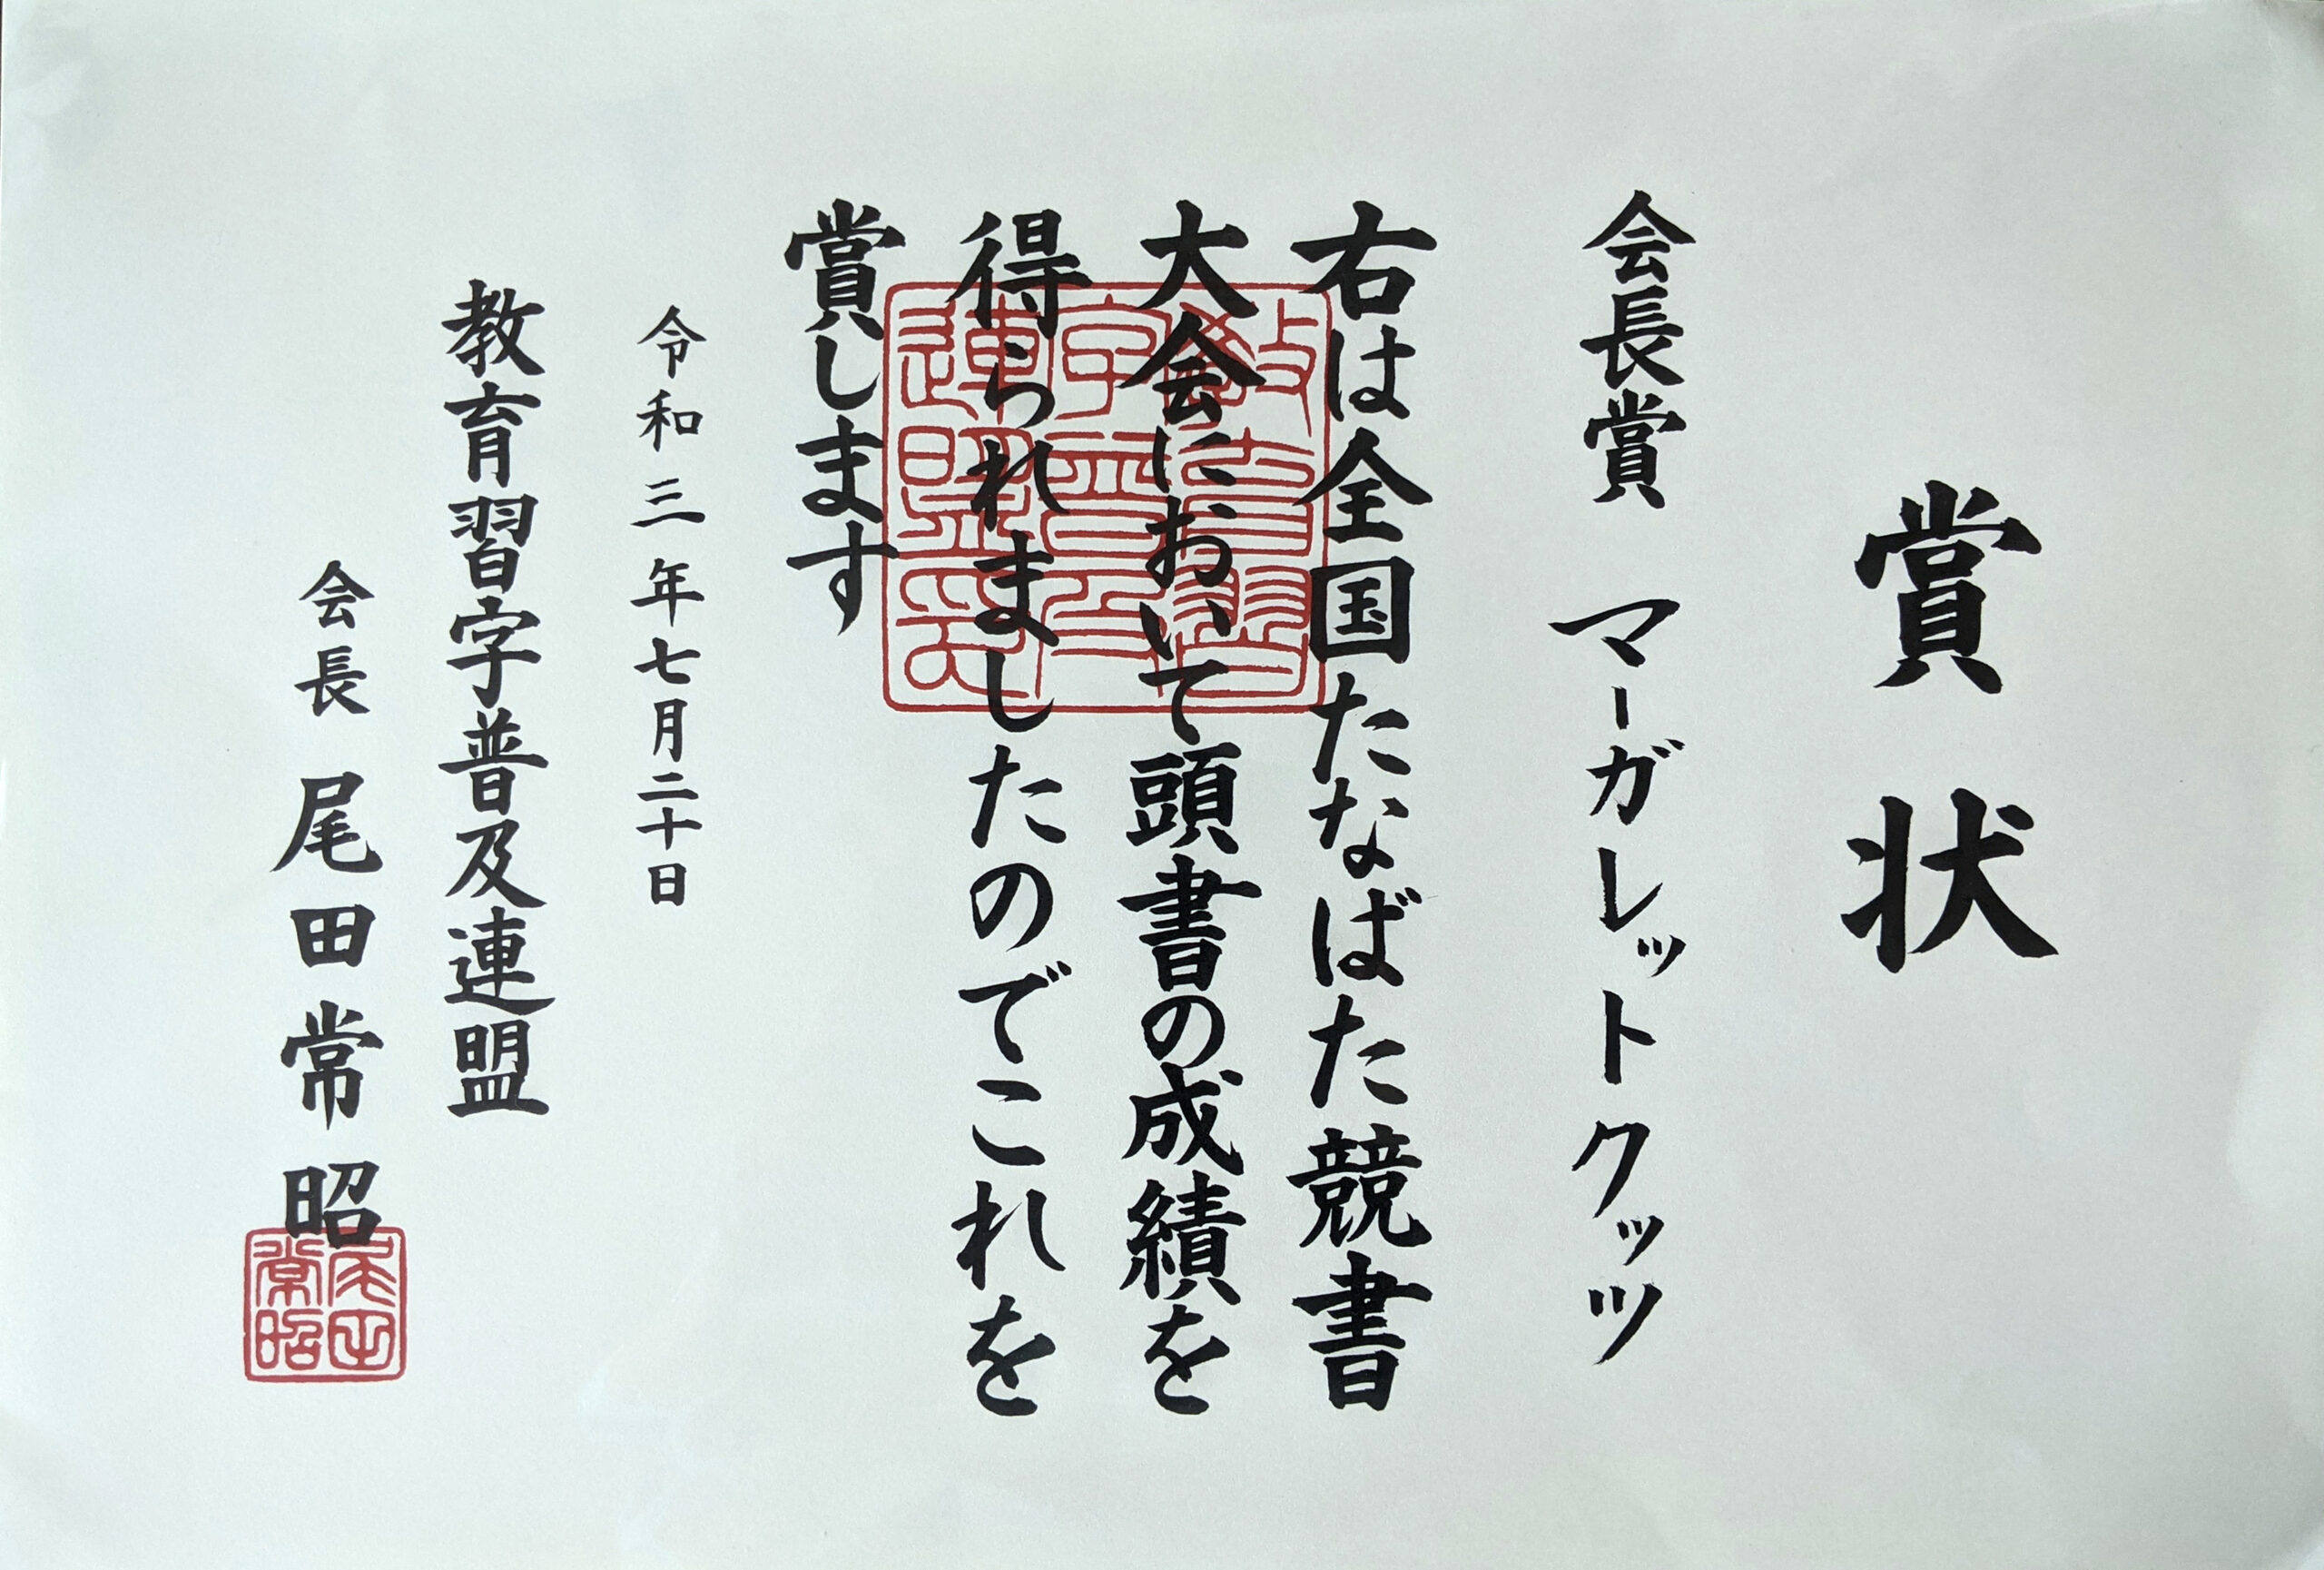 賞状
会長賞 マーガレットクッツ
右は全国たなばた競書
大会において頭書の成績を
得られましたのでこれを
賞します
令和三年七月二十日
教育習字普及連盟
会長 尾田常昭
尾田常昭